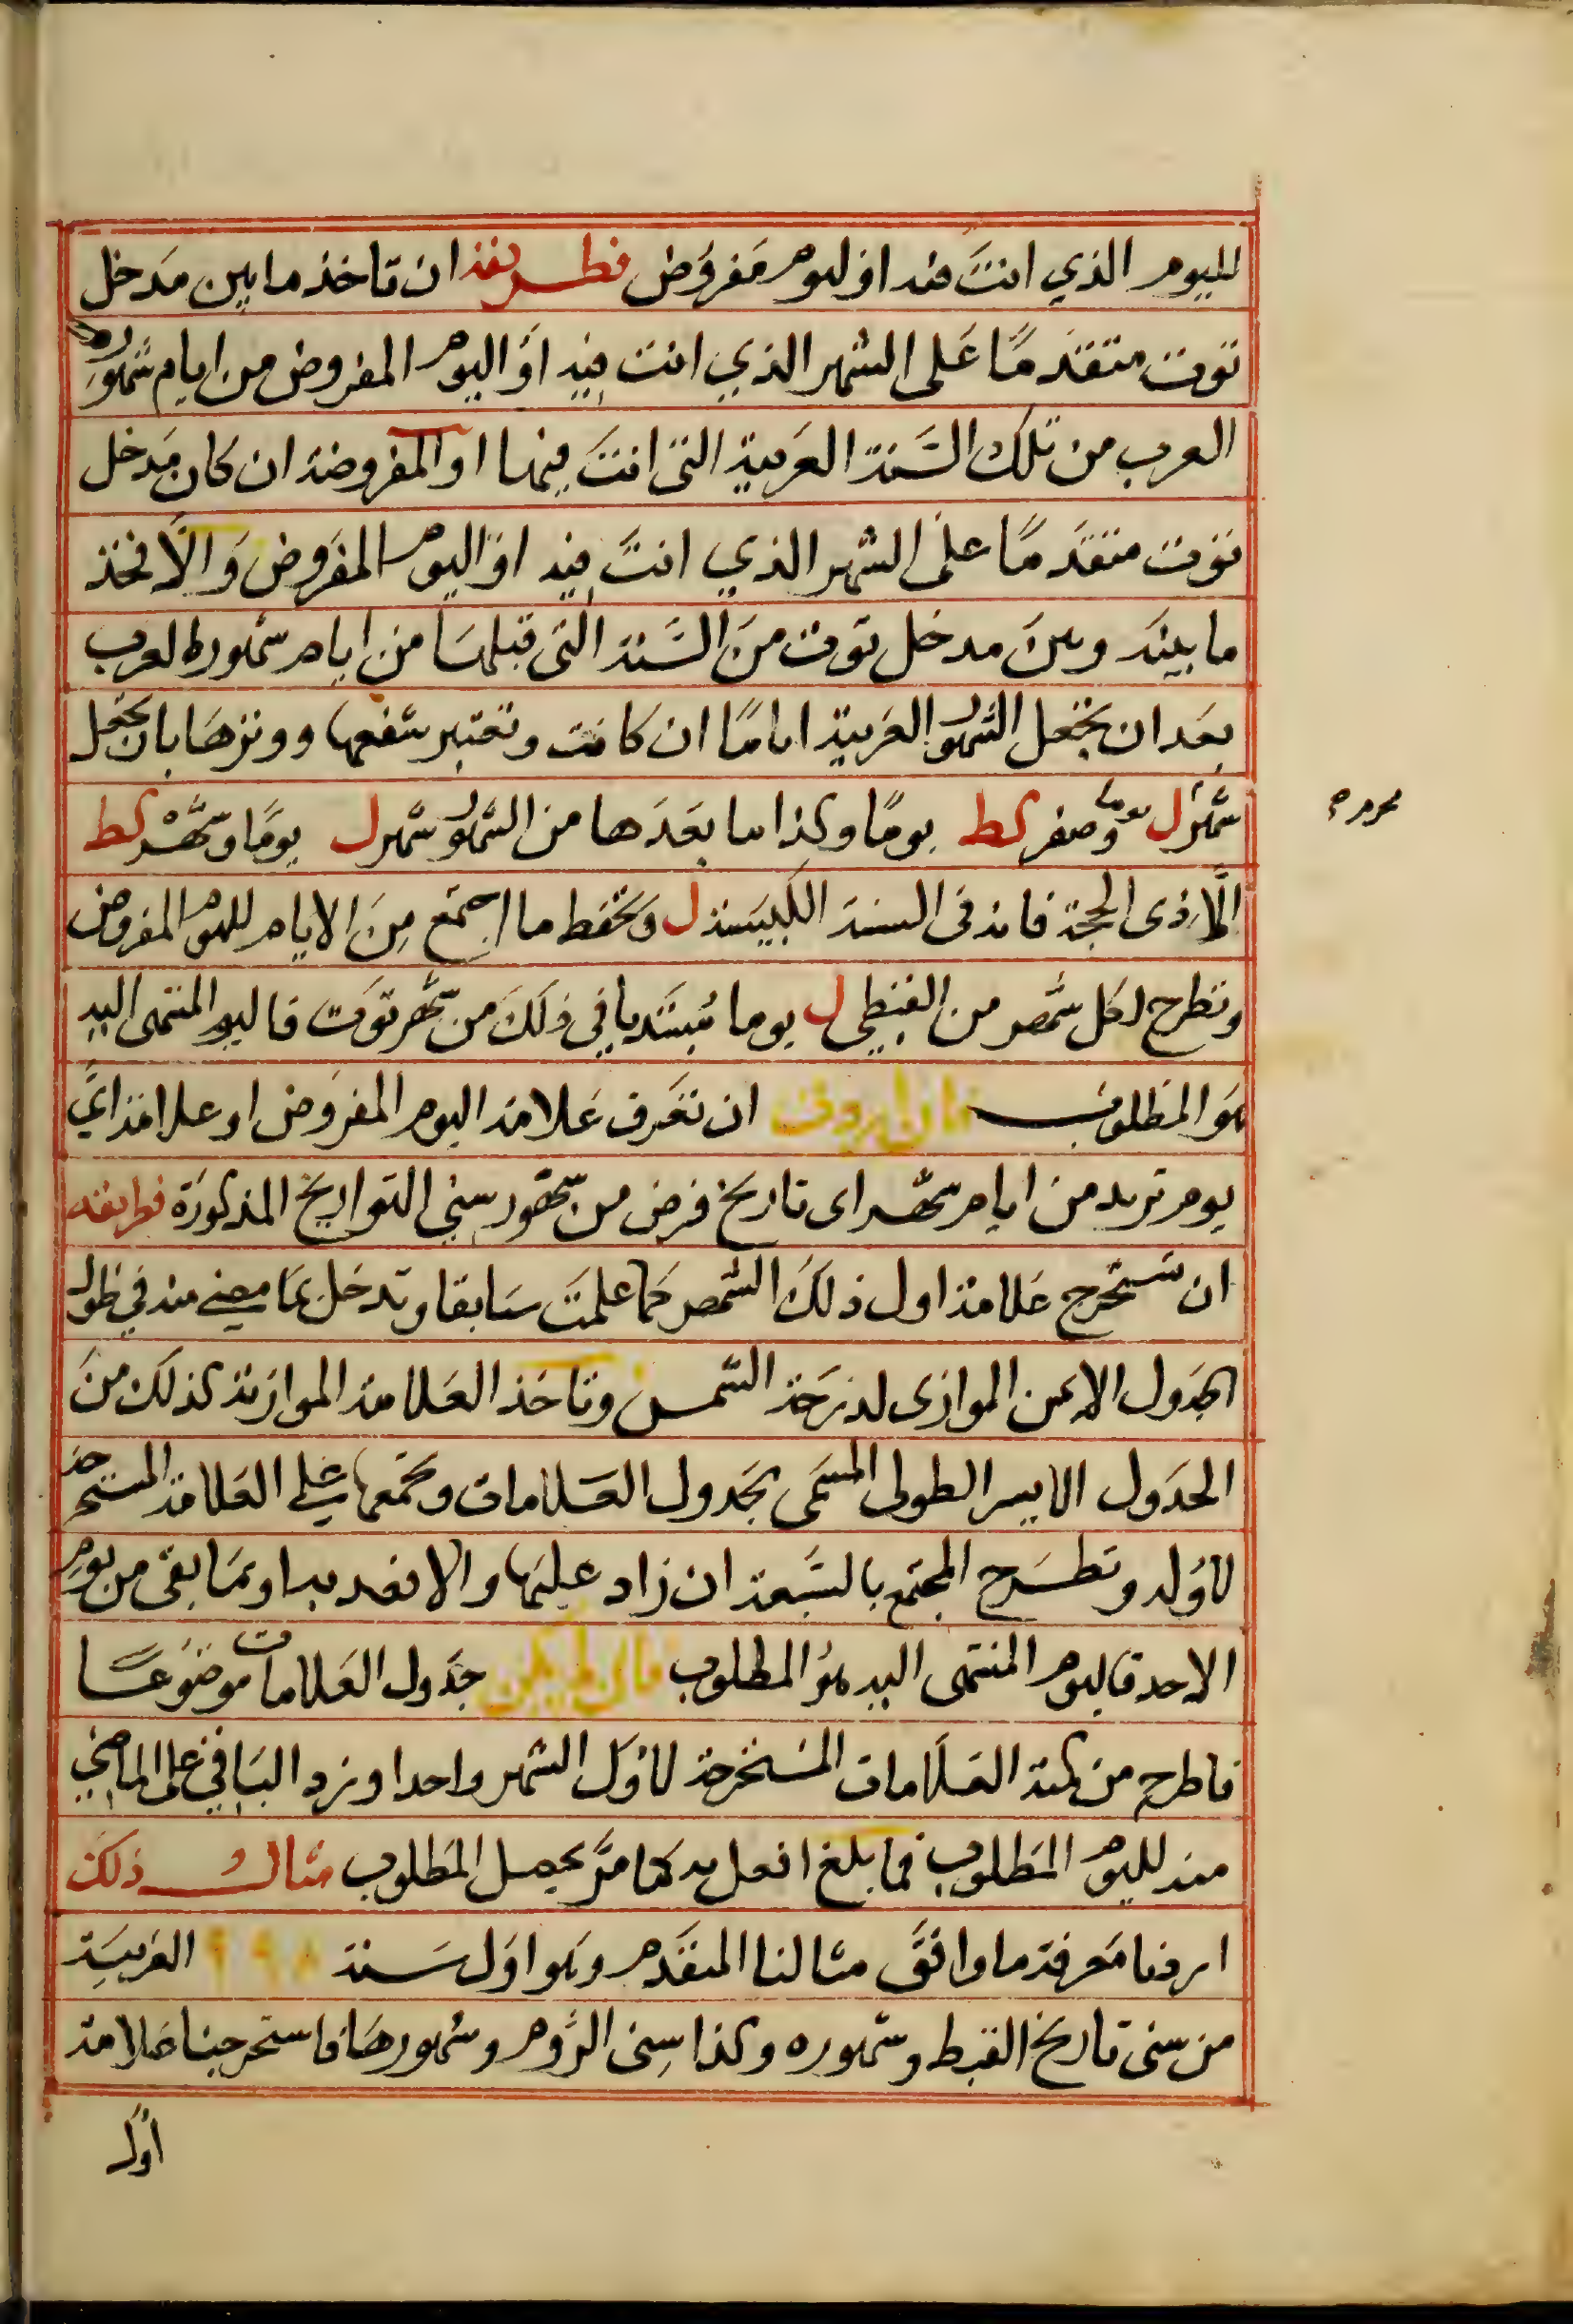 لليوم الذي انتَ فيه او ليوم مَفروض فطريقه ان تاخذ ما بين مَدخل
توت متقدمًا عَلى الشهر الذي انت فيه اوَ اليوم المفروض من ايام شهور
العرب من تلك السَّنة العَربية التى انتَ فيها او المفروضة ان كان مَدخل
توت متقدمًا علىَ الشهر الذي انتَ فيه او اليوم المفَروض وَالَّا فخذ
ما بينه وبين مدخل توت منَ السَّنة التى قبلها من ايام شهور العرب
بعَد ان تجعل الشهور العَربية اياما ان كانت وتعتبر شفعها ووترهَا بان تجعل
شهر ل يومًا وصفر كط يومًا وكذا ما بعَدَها من الشهور شهر ل يومًا وشهْر كط
الَّا ذى الحجة فانه فى السنة الكبيسة ل وتحفظ ما اجتمع مِنَ الايام لليوم المفروض
وتطرح لكل شهر من القبطي ل يوما مُبتَديا في ذلكَ من شهر توَت فاليوم المنتهى اليه
هوَ المطَلوب فان اردت ان تعَرف عَلامة اليوم المفرَوض او علامة ايَّ
يوم تريد من ايام شهر اى تاريخ فرض من شهور سنِي التواريخ المذكورَة فطريقه
ان تستخرج عَلامة اول ذلكَ الشهر كما علمتَ سَابقا وتدخل بمَا مضى منه في طول
الجَدول الايمن الموازى لدرَجة الشمس وتاخذ العَلامة الموازنة لذلك منَ
الجدَول الايسر الطولى المسَمى بجَدول العَلامات وتجَمعها على العَلامة المستخرجة
لاوَله وتطرَح المجتمع بالسَّبعة ان زاد عليهَا والا فعد به او بمَا بقى من يومِ
الاحد فاليوم المنتهى اليه هوُ المطلوب فان لم يكن جدَول العَلامات موضوَعًا
فاطرح من كمية العَلَامات المسَتخرجة لاوَل الشهر واحدا وزد البَاقي على الماضي
منه لليوم المَطلوب فما بلغ افعل به كما مَرَّ يحصل المَطلوب مثال ذلكَ
اردنا مَعرفة ما وافقَ مثالنا المتقَدم وهو اوَل سَنة ٩٩٨ العَربيَة
من سنى تاريخ القبط وشهوره وكذا سِنى الرُّوم وشهورهَا فاستخرجنا عَلامة
محرم صح
اول